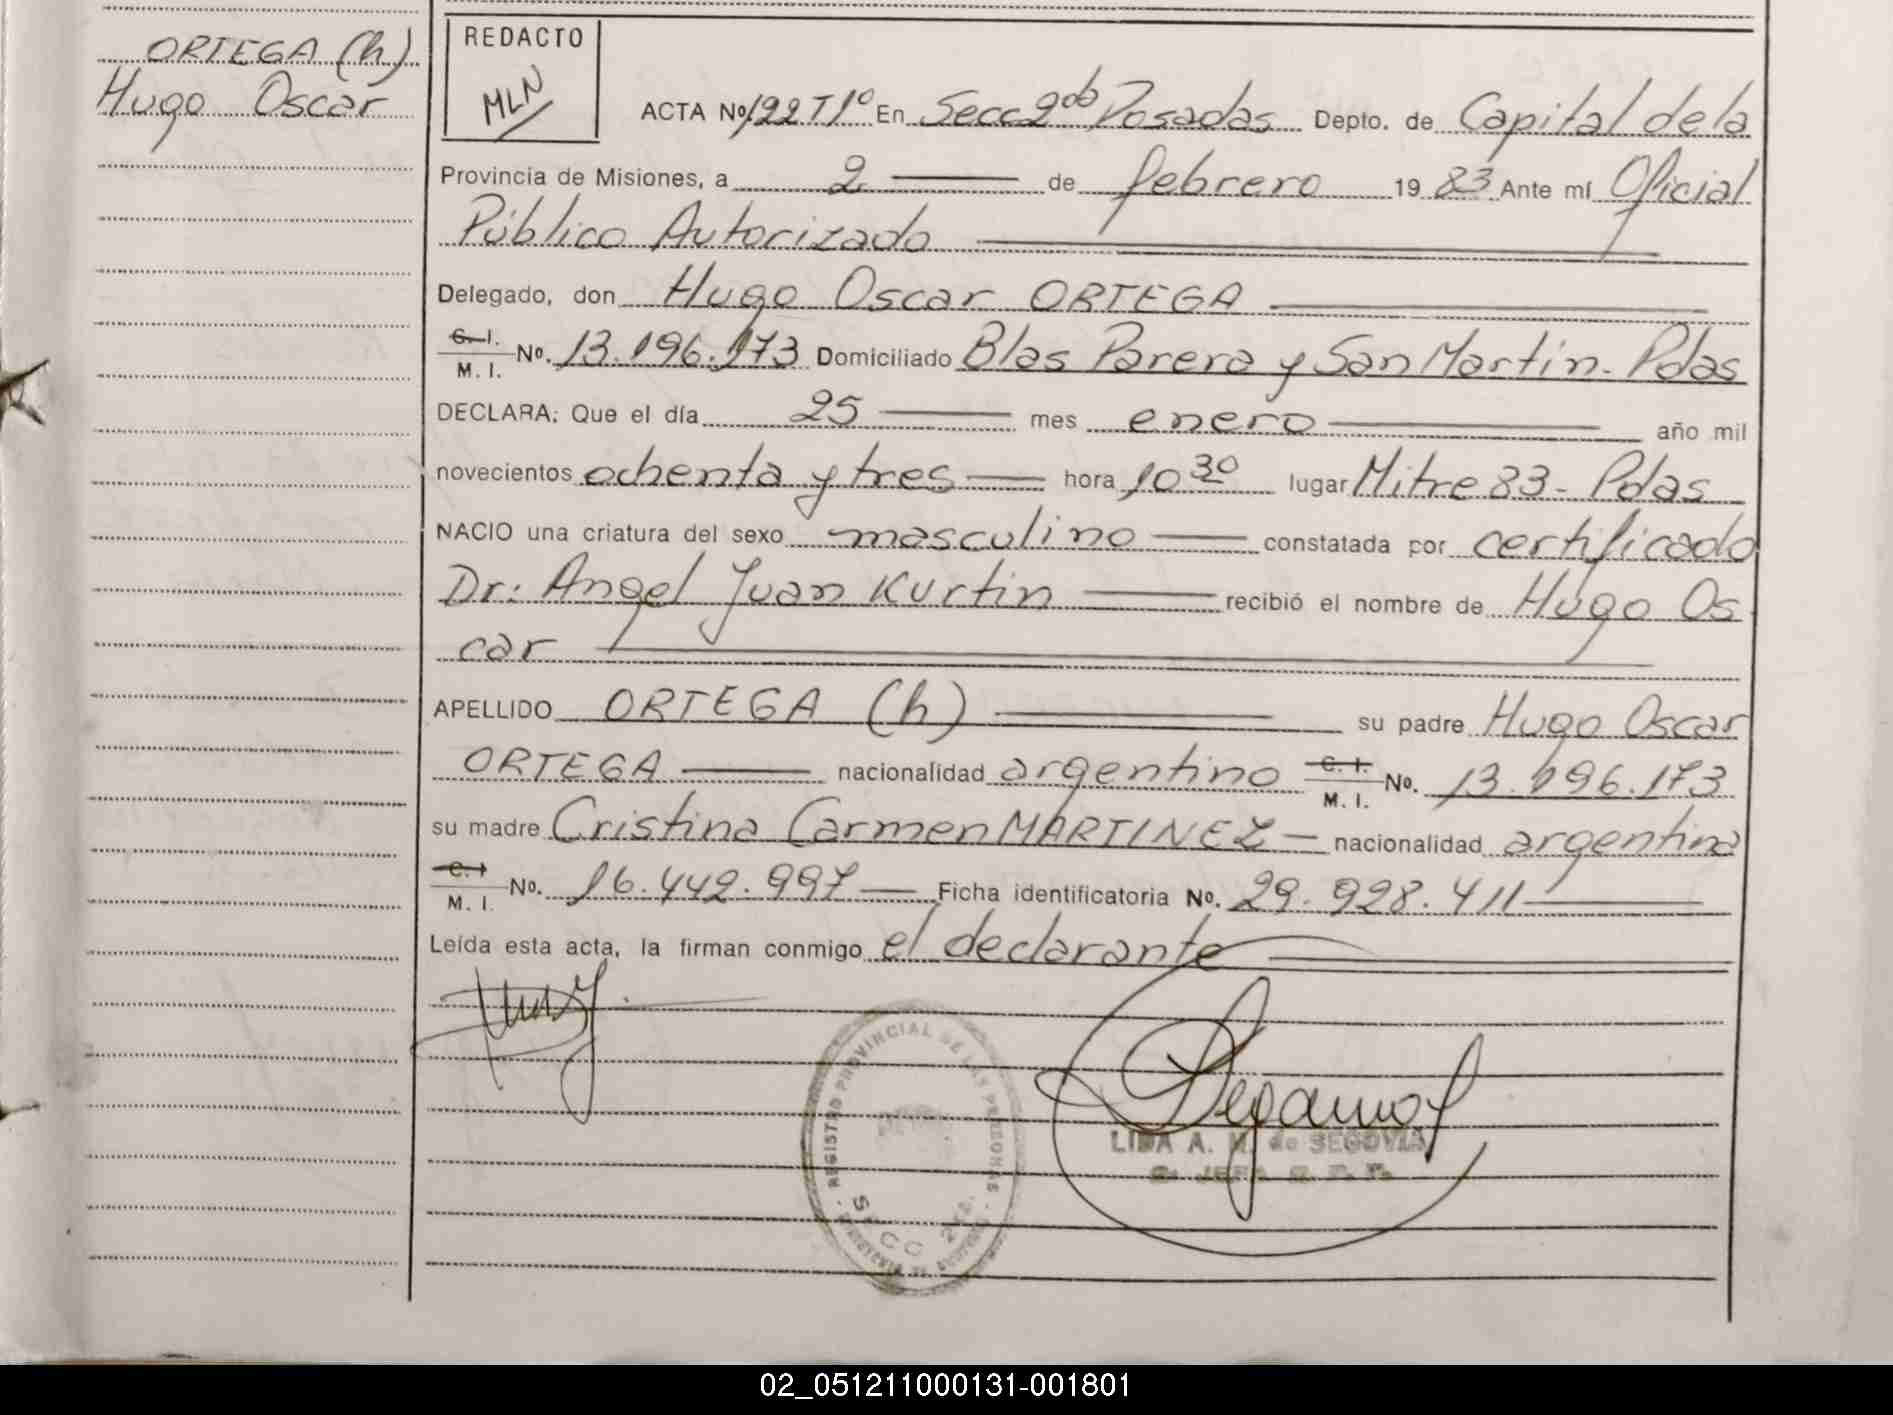 ORTEGA (h)
Hugo Oscar
REDACTO
MLN
ACTA Nº 122 T1º En Secc 2da Posadas Depto. de Capital de la
Provincia de Misiones, a 2 de febrero 19 83 Ante mí Oficial
Público Autorizado
Delegado, don Hugo Oscar ORTEGA
C. I. M. I. Nº. 13.196.173 Domiciliado Blas Parera y San Martin. Pdas
DECLARA: Que el día 25 mes enero año mil
novecientos ochenta y tres hora 10 30 lugar Mitre 83 - Pdas
NACIO una criatura del sexo masculino constatada por certificado
Dr: Angel Juan Kurtin recibió el nombre de Hugo Os
car
APELLIDO ORTEGA (h) su padre Hugo Oscar
ORTEGA nacionalidad argentino C. I. M. I. Nº. 13.196.173
su madre Cristina Carmen MARTINEZ nacionalidad argentina
C. I M. I. Nº. 16.442.997 Ficha identificatoria Nº. 29.928.411
Leída esta acta, la firman conmigo el declarante
REGISTRO PROVINCIAL DE LAS PERSONAS
SECC 2da.
LIDA A. M. de SEGOVIA
02_051211000131-001801